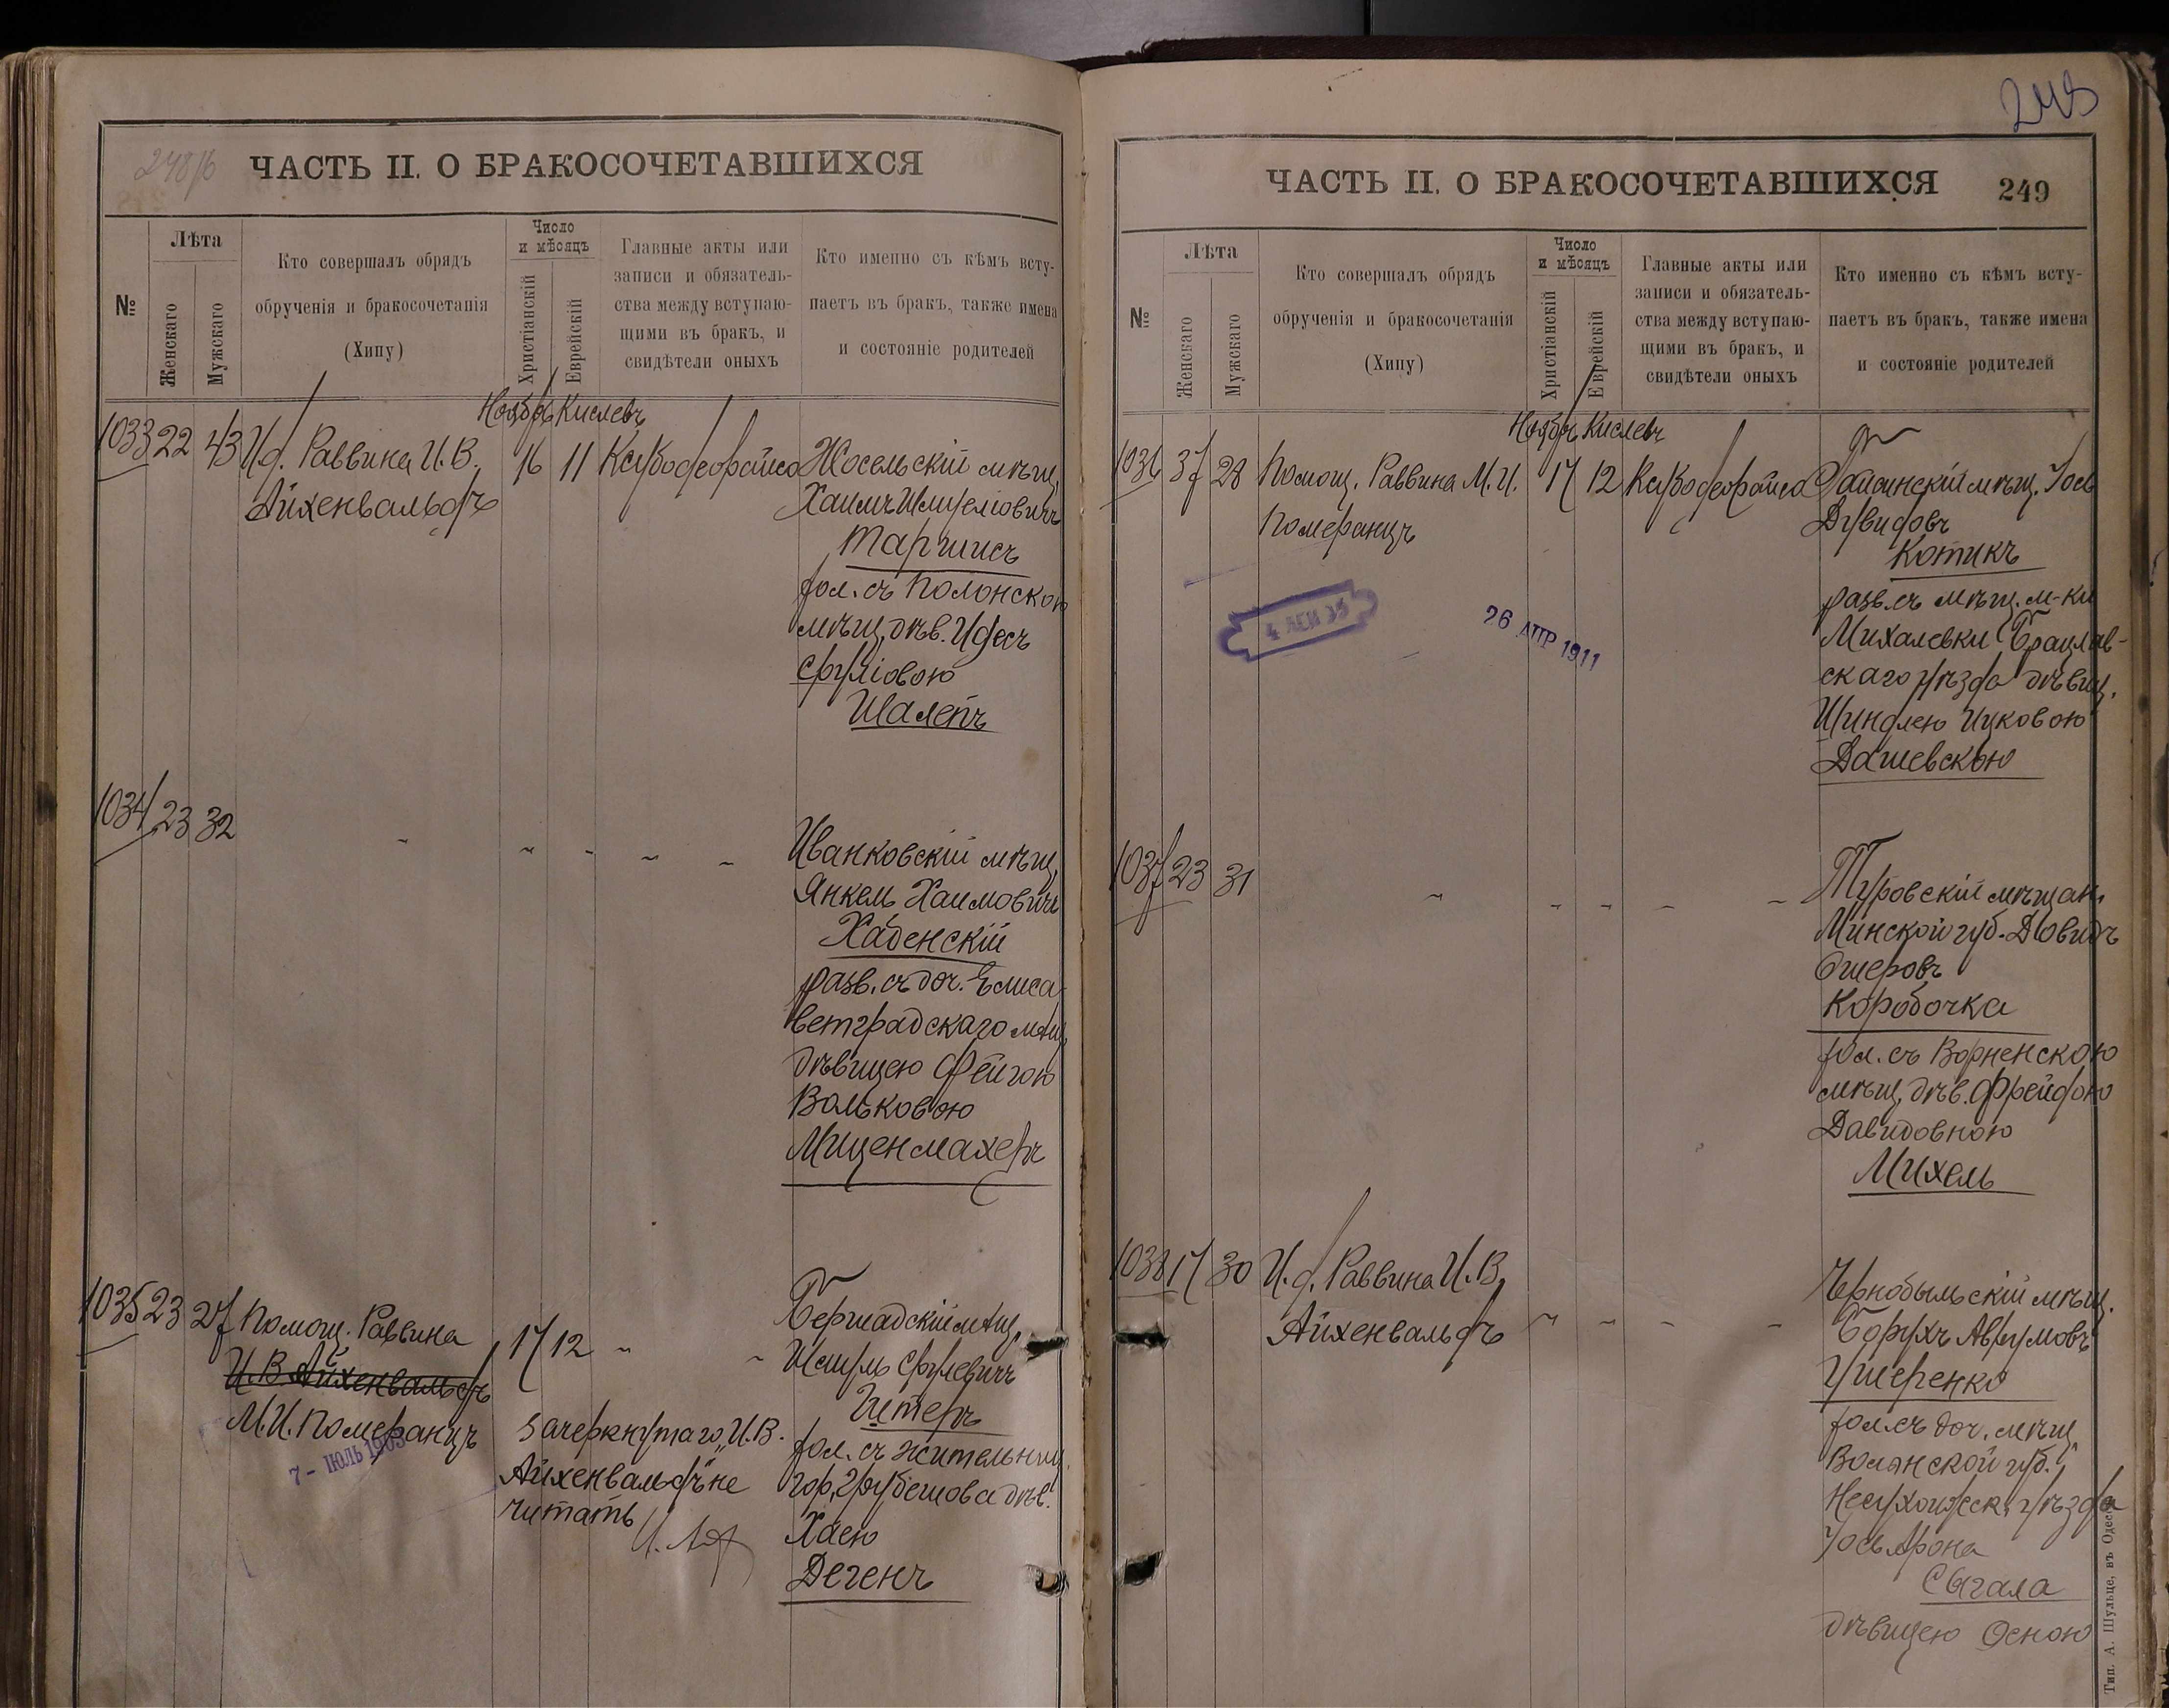 248/б
ЧАСТЬ II. О БРАКОСОЧЕТАВШИХСЯ
№
Лѣта
Женскаго
Мужскаго
Кто совершалъ обрядъ
обрученія и бракосочетанія
(Хипу)
Число
и мѣсяцъ
Христіанскій
Еврейскій
Главные акты или
записи и обязатель-
ства между вступаю-
щими въ бракъ, и
свидѣтели оныхъ
Кто именно съ кѣмъ всту-
паетъ въ бракъ, также имена
и состояніе родителей
Ноябрь Кислевъ
1033 22 43 И.д. Раввина И.В. 16 11
Айхенвальдъ
мѣщ.
Хаимъ Шмуеліовичъ
Таршисъ
хол. съ Полонскою
мѣщ. дѣв. Идесъ
Сруліовою
Шалетъ
1034 23 32
Иванковскій мѣщ.
Янкель Хаимовичъ
Хабенскій
разв. съ доч. Елиса-
ветградскаго мѣщ.
дѣвицею Фейгою
Вольковою
Миценмахеръ
1035 23 27 Помощ. Раввина 17 12
И.В. Айхенвальдъ
М.И. Померанцъ
7 - ІЮЛЬ 1903
зачеркнутаго "И.В.
Айхенвальдъ" не
читать
Бершадскій мѣщ.
Шмуль Срулевичъ
хол. съ жительниц.
гор. Грубешова дѣв.
Хаею
Дегенъ
249
ЧАСТЬ II. О БРАКОСОЧЕТАВШИХСЯ
249
№
Лѣта
Женскаго
Мужскаго
Кто совершалъ обрядъ
обрученія и бракосочетанія
(Хипу)
Число
и мѣсяцъ
Христіанскій
Еврейскій
Главные акты или
записи и обязатель-
ства между вступаю-
щими въ бракъ, и
свидѣтели оныхъ
Кто именно съ кѣмъ всту-
паетъ въ бракъ, также имена
и состояніе родителей
Ноябрь Кислевъ
1036 37 28 Помощ. Раввина М.И. 17 12
Померанцъ
26 АПР 1911
Гайсинскій мѣщ. Іось
Дувидовъ
Котикъ
разв. съ мѣщ. м-ки
Михалевки Брацлав-
скаго уѣзда дѣвиц.
Шиндлею Ицковою
Дашевскою
1037 23 31
Туровскій мѣщан.
Минской губ. Довидъ
Ошеровъ
Коробочка
хол. съ Ворненскою
мѣщ. дѣв. Фрейдою
Давидовною
Михель
1038 17 30 И.д. Раввина И.В.
Айхенвальдъ
Чернобыльскій мѣщ.
Борухъ Аврумовъ
Ушеренко
хол. съ доч. мѣщ.
Волынской губ.
уѣзда
Іось Арона
Сыгала
дѣвицею Осною
Тип. А. Шульце, въ Одессѣ